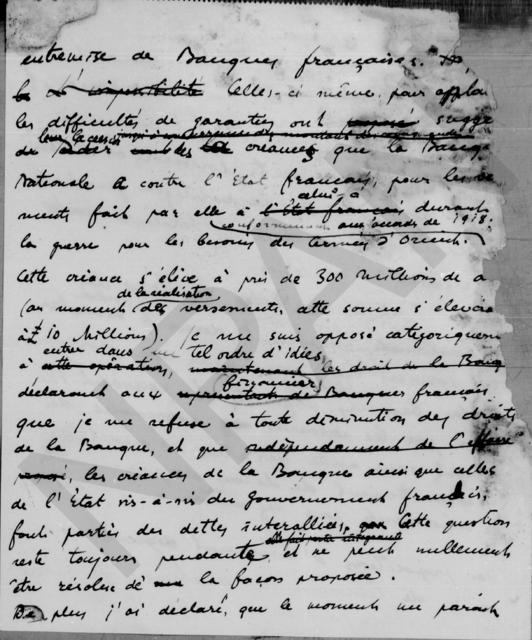 entremise de Banques françaises.
impossibilité Celles-ci même, pour
les difficultés de garanties ont sugge
leur la cession
de céder les créances que la Banq
Nationale a contre l'Etat français, pour les
celui à
ments fait par elle à l'Etat français durant
conformément aux accords de 1918.
la guerre pour les besoins des Armées d'Orient.
Cette créance s'élève à près de 300 millions de
de la réalisation
(au moment des versements, cette somme s'élevai
à £ 10 Millions). Je me suis opposé catégoriquem
entrer dans un tel ordre d'idées,
à cette opération, maintenant les droits de la Banq
déclarant aux représentants de Banques français
que je me refuse à toute diminution des droits
de la Banque, et que indépendamment de l'affaire
les créances de la Banque ainsi que celles
de l'Etat vis-à-vis du Gouvernement français,
font parties des dettes interalliées, que Cette question
reste toujours pendante et ne peut nullement
être résolue de la façon proposée.
De plus j'ai déclaré, que le moment me parait